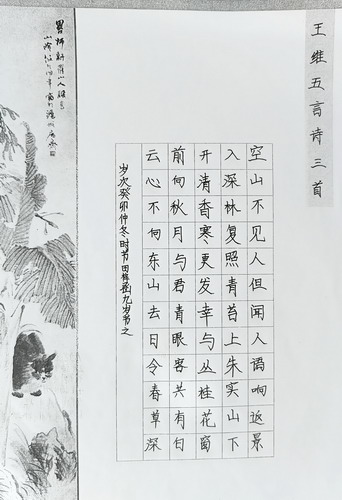 王维五言诗三首
空山不见人但闻人语响返景
入深林复照青苔上朱实山下
开清香寒更发幸与丛桂花窗
前向秋月与君青眼客共有白
云心不向东山去日令春草深
岁次癸卯仲冬时节田函九岁书之